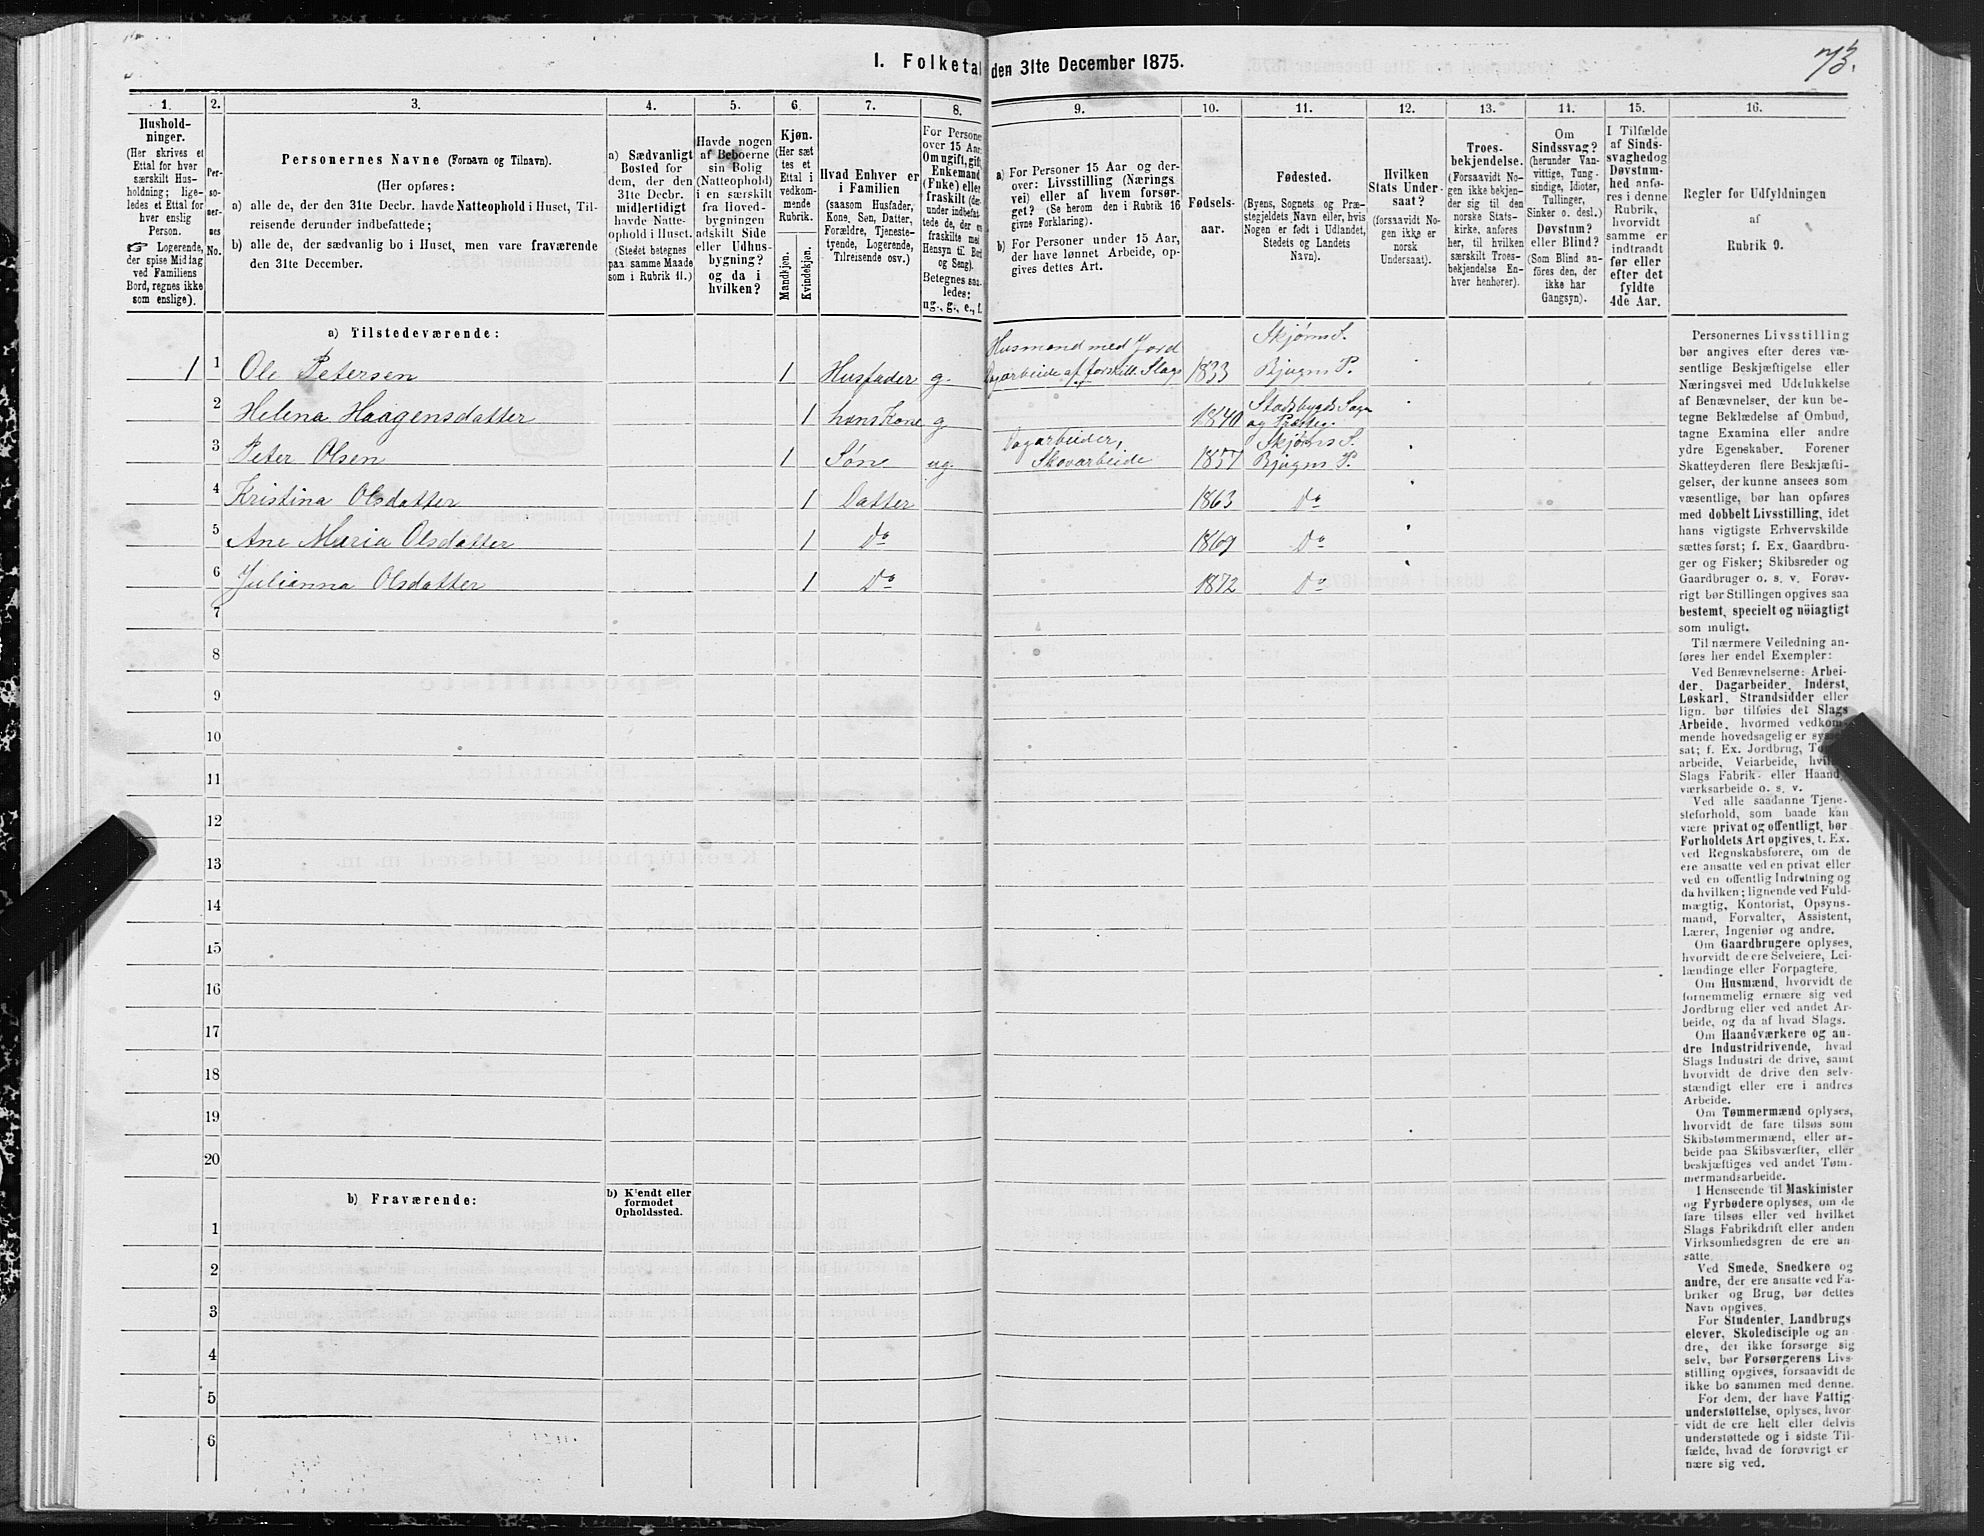 73.
I. Folketal den 31te December 1875.
1.
Hushold-
ninger.
(Her skrives et
Ettal for hver
særskilt Hus-
holdning; lige-
ledes et Ettal for
hver enslig
Person.
☞ Logerende,
der spise Middag
ved Familiens
Bord, regnes ikke
som enslige).
2.
Per-
so-
ner-
nes
No.
3.
Personernes Navne (Fornavn og Tilnavn).
(Her opføres:
a) alle de, der den 31te Decbr. havde Natteophold i Huset, Til-
reisende derunder indbefattede;
b) alle de, der sædvanlig bo i Huset, men vare fraværende
den 31te December.
4.
a) Sædvanligt
Bosted for
dem, der den
31te Decbr.
midlertidigt
havde Natte-
ophold i Huset.
(Stedet betegnes
paa samme Maade
som i Rubrik 11.)
5.
Havde nogen
af Beboerne
sin Bolig
(Natteophold)
i en særskilt
fra Hoved-
bygningen
adskilt Side
eller Udhus-
bygning?
og da i
hvilken?
6.
Kjøn.
(Her sæt-
tes et
Ettal i
vedkom-
mende
Rubrik.
Mandkjøn.
Kvindekjøn.
7.
Hvad Enhver er
i Familien
(saasom Husfader,
Kone, Søn, Datter,
Forældre, Tjeneste-
tyende, Logerende,
Tilreisende osv.)
8.
For Persone
over 15 Aar:
Om ugift, gift,
Enkemand
(Fuke) eller
fraskilt (der-
under indbefat-
tede de, der er
fraskilte med
Hensyn til Bord
og Seng).
Betegnes saa-
ledes:
ug., g., e., f.
9.
a) For Personer 15 Aar og der-
over: Livsstilling (Nærings
vei) eller af hvem forsør-
get? (Se herom den i Rubrik 16
givne Forklaring).
b) For Personer under 15 Aar,
der have lønnet Arbeide, op-
gives dettes Art.
10.
Fødsels-
aar.
11.
Fødested.
(Byens, Sognets og Præ-
stegjeldets Navn eller, hvis
Nogen er født i Udlandet,
Stedets og Landets
Navn).
12.
Hvilken
Stats Under-
saat?
(forsaavidt No-
gen ikke er
norsk
Undersaat).
13.
Troes-
bekjendelse.
(Forsaavidt No-
gen ikke bekjen-
der sig til den
norske Stats-
kirke, anføres
her, til hvilken
særskilt Troes-
bekjendelse En-
hver henhører).
14.
Om
Sindssvag?
(herunder Van-
vittige, Tung-
sindige, Idioter,
Tullinger,
Sinker o. desl.)
Døvstum?
eller Blind?
(Som Blind an-
føres den, der
ikke har
Gangsyn).
15.
I Tilfælde
af Sinds-
svaghed og
Døvstum-
hed anfø-
res i denne
Rubrik,
hvorvidt
samme er
indtraadt
før eller
efter det
fyldte
4de Aar.
16.
Regler for Udfyldningen
af
Rubrik 9.
a) Tilstedeværende:
1 1 Ole Petersen 1 Husfader g. Husmand med Jord Dagarbeide af forskill. Slags 1833 Skjørns S. Bjugns P.
2 Helena Haagensdatter 1 hans Kone g 1840 Stadsbygds Sogn og Præsteg.
3 Peter Olsen 1 Søn ug. Dagarbeider, Skovarbeide 1857 Skjørns S. Bjugns P.
4 Kristina Olsdatter 1 Datter 1863 Do
5 Ane Maria Olsdatter 1 Do 1869 Do
6 Julianna Olsdatter 1 Do 1872 Do
7
8
9
10
11
12
13
14
15
16
17
18
19
20
b) Fraværende:
b) Kjendt eller
formodet
Opholdssted.
1
2
3
4
5
6
Personernes Livsstilling
bør angives efter deres væ-
sentlige Beskjæftigelse eller
Næringsvei med Udelukkelse
af Benævnelser, der kun be-
tegne Beklædelse af Ombud,
tagne Examina eller andre
ydre Egenskaber. Forener
Skatteyderen flere Beskjæfti-
gelser, der kunne ansees som
væsentlige, bør han opføres
med dobbelt Livsstilling, idet
hans vigtigste Erhvervskilde
sættes først; f. Ex. Gaardbru-
ger og Fisker; Skibsreder og
Gaardbruger o. s. v. Forøv-
rigt bør Stillingen opgives saa
bestemt, specielt og nöiagtigt
som muligt.
Til nærmere Veiledning an-
føres her endel Exempler:
Ved Benævnelserne: Arbei-
der, Dagarbeider, Inderst,
Løskarl, Strandsidder eller
lign. bør tilføies det Slags
Arbeide, hvormed vedkom-
mende hovedsagelig er syssel
sat; f. Ex. Jordbrug, Tom
arbeide, Veiarbeide, hvil
Slags Fabrik- eller Haand
værksarbeide o. s. v.
Ved alle saadanne Tjene-
steforhold, som baade kan
være privat og offentligt, bør
Forholdets Art opgives, f. Ex.
ved Regnskabsførere, om de
ere ansatte ved en privat eller
ved en offentlig Indretning og
da hvilken; lignende ved Fuld-
mægtig, Kontorist, Opsyns-
mand, Forvalter, Assistent,
Lærer, Ingeniør og andre.
Om Gaardbrugere oplyses,
hvorvidt de ere Selveiere, Lei-
lændinge eller Forpagtere.
Om Husmænd, hvorvidt de
fornemmelig ernære sig ved
Jordbrug eller ved andet Ar-
beide, og da af hvad Slags.
Om Haandværkere og an-
dre Industridrivende, hvad
Slags Industri de drive, samt
hvorvidt de drive den selv-
stændigt eller ere i andres
Arbeide.
Om Tømmermænd oplyses,
hvorvidt de fare tilsøs som
Skibstømmermænd, eller ar-
beide paa Skibsværfter, eller
beskjæftiges ved andet Tøm-
mermandsarbeide.
I Henseende til Maskinister
og Fyrbødere oplyses, om de
fare tilsøs eller ved hvilket
Slags Fabrikdrift eller anden
Virksomhedsgren de ere an-
satte.
Ved Smede, Snedkere og
andre, der ere ansatte ved Fa-
briker og Brug, bør dettes
Navn opgives.
For Studenter, Landbrugs
elever, Skoledisciple og an-
dre, der ikke forsørge sig
selv, bør Forsørgerens Livs-
stilling opgives, forsaavidt de
ikke bo sammen med denne.
For dem, der have Fattig-
understøttelse, oplyses, hvor-
vidt de ere helt eller delvis
understøttede og i sidste Til-
fælde, hvad de forøvrigt er
nære sig ved.